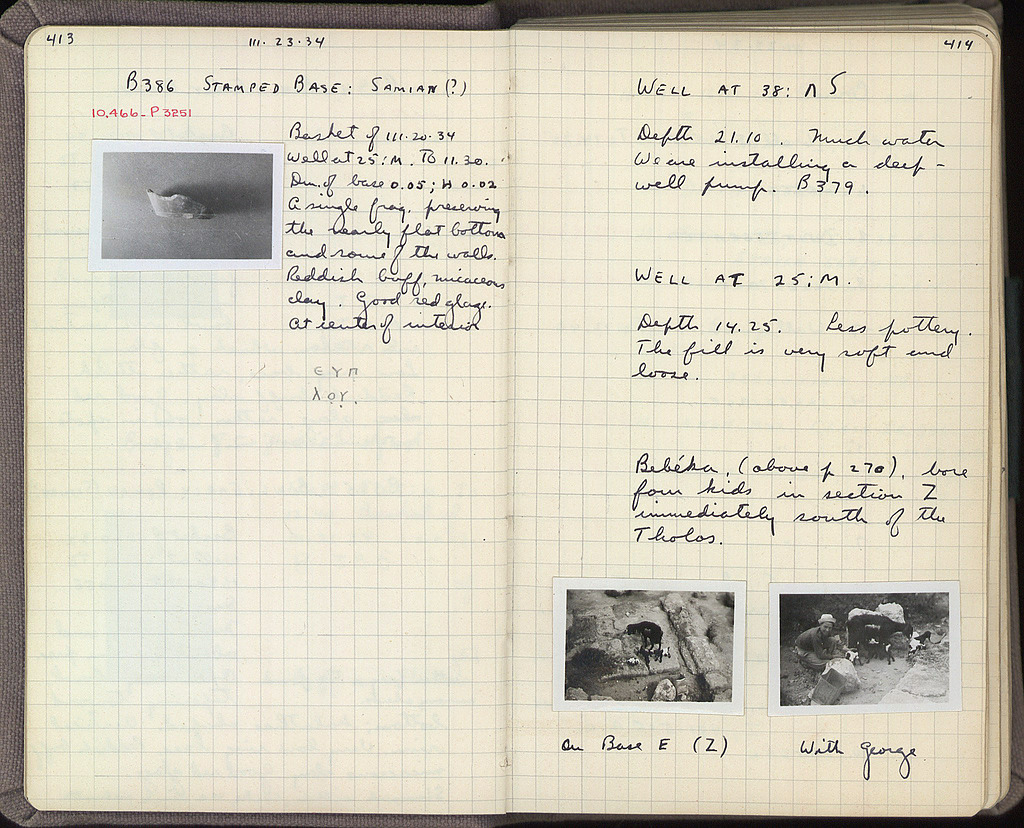 413
III·23·34
B386 STAMPED BASE: SAMIAN(?)
10,466 - P 3251
Basket of III·20·34
Well at 25:M. To 11.30.
Dm. of base 0.05; H 0.02
A single frag. preserving
the nearly flat bottom
and some of the walls.
Reddish buff, micaceous
clay. Good red glaze.
At center of interior
ЄΥΠ
λο̣Υ̣.
414
WELL AT 38: Λ S
Depth 21.10. Much water
We are installing a deep-
well pump. B379.
WELL AT 25:M.
Depth 14.25. Less pottery.
The fill is very soft and
loose.
Bebéka, (above p 270), bore
four kids in section Z
immediately south of the
Tholos.
On Base E (Z)
With George